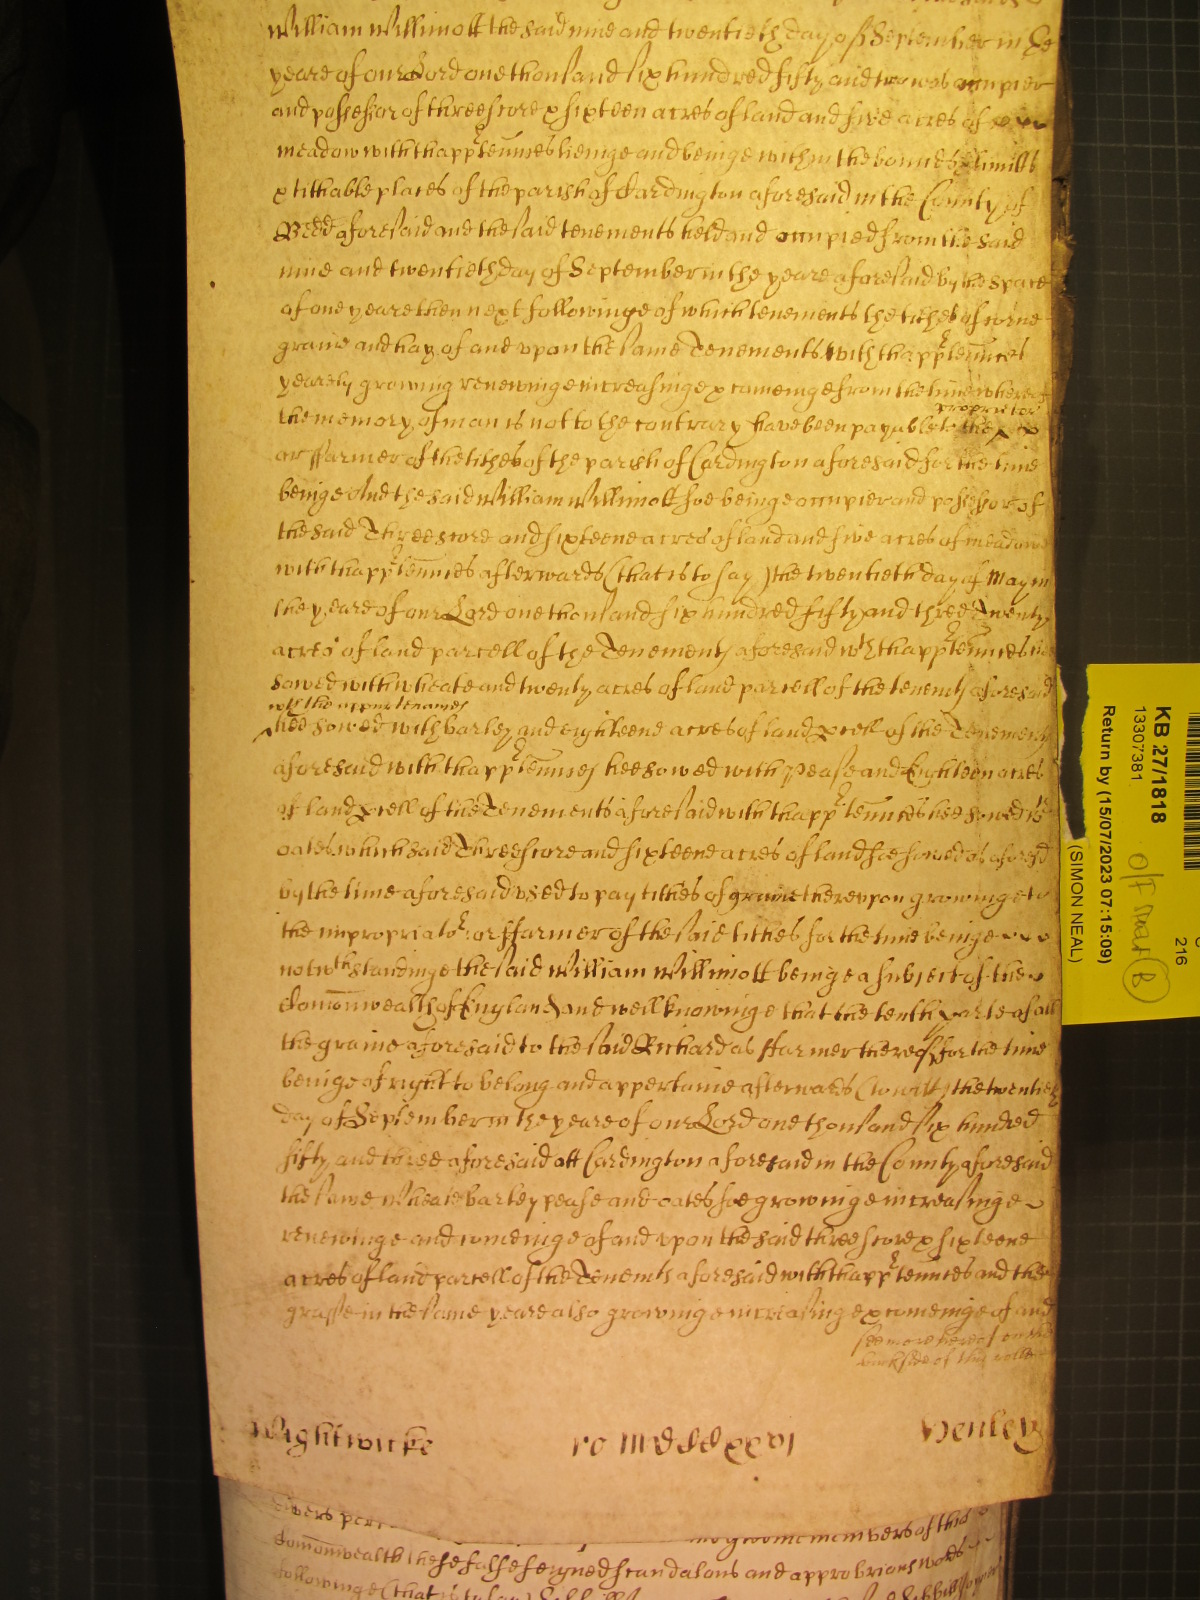 William Willimott the said nine and twentieth day of September in the
yeare of our Lord one thousand six hundred fifty and two was occupier
and possessor of threescore & sixteen acres of land and five acres of
meadow with thapptennces lieinge and beinge within the bounds & limitts
& tithable places of the parish of Cardington aforesaid in the County of
Bedd aforesaid and the said tenements held and occupied from the said
nine and twentieth day of September in the yeare aforesaid by the space
of one yeare then next followinge of which tenements the tithes of corne
graine and hay of and vpon the same Tenements with thapptennces
yearely growing renewinge increasinge & comeinge from the time whereof
proprietor
the memory of man is not to the contrary have been payable to the
or ffarmer of the tithes of the parish of Cardington aforesaid for the time
beinge And the said William Willimott soe beinge occupier and possessor of
the said Threescore and sixteene acres of land and five acres of meadow
with thapptennces afterwards (that is to say) the twentieth day of May in
the yeare of our Lord one thousand six hundred fifty and three Twenty
acres of land parcell of the Tenements aforesaid wth thapptennces hee
sowed with wheate and twenty acres of land parcell of the tenemts aforesaid
with the appurtenances
hee sowed with barley and eighteene acres of land pcell of the Tenements
aforesaid with thapptennces hee sowed with pease and Eighteen acres
of land pcell of the Tenements aforesaid with thapptennces hee sowed wth
oates which said Threescore and sixteene acres of land soe sowed as aforesd
by the time aforesaid vsed to pay tithes of graine therevpon growinge to
the impropriator or ffarmer of the said tithes for the time beinge
notwthstandinge the said William Willimott beinge a subject of the
Comonwealth of England and well knowinge that the tenth parte of all
the graine aforesaid to the said Richard as ffarmer thereof for the time
beinge of right to belong and appertaine afterwards (to witt) the twentieth
day of September in the yeare of our Lord one thousand six hundred
fifty and three aforesaid att Cardington aforesaid in the County aforesaid
the same wheate barley pease and oates soe growinge increasinge
renewinge and comeinge of and vpon the said threescore & sixteene
acres of land parcell of the Tenemts aforesaid with thapptennces and the
grasse in the same yeare also growinge increasing & comeinge of and
see more hereof on the
backside of this rolle
Wightwicke ro mdccxxvi Henley
divers members of this
Comonwealth these false feigned scandalous and approbrious words
followinge (that is to say)
KB 27/1818
13307381
Return by (15/07/2023 07:15:09)
(SIMON NEAL)
216
B